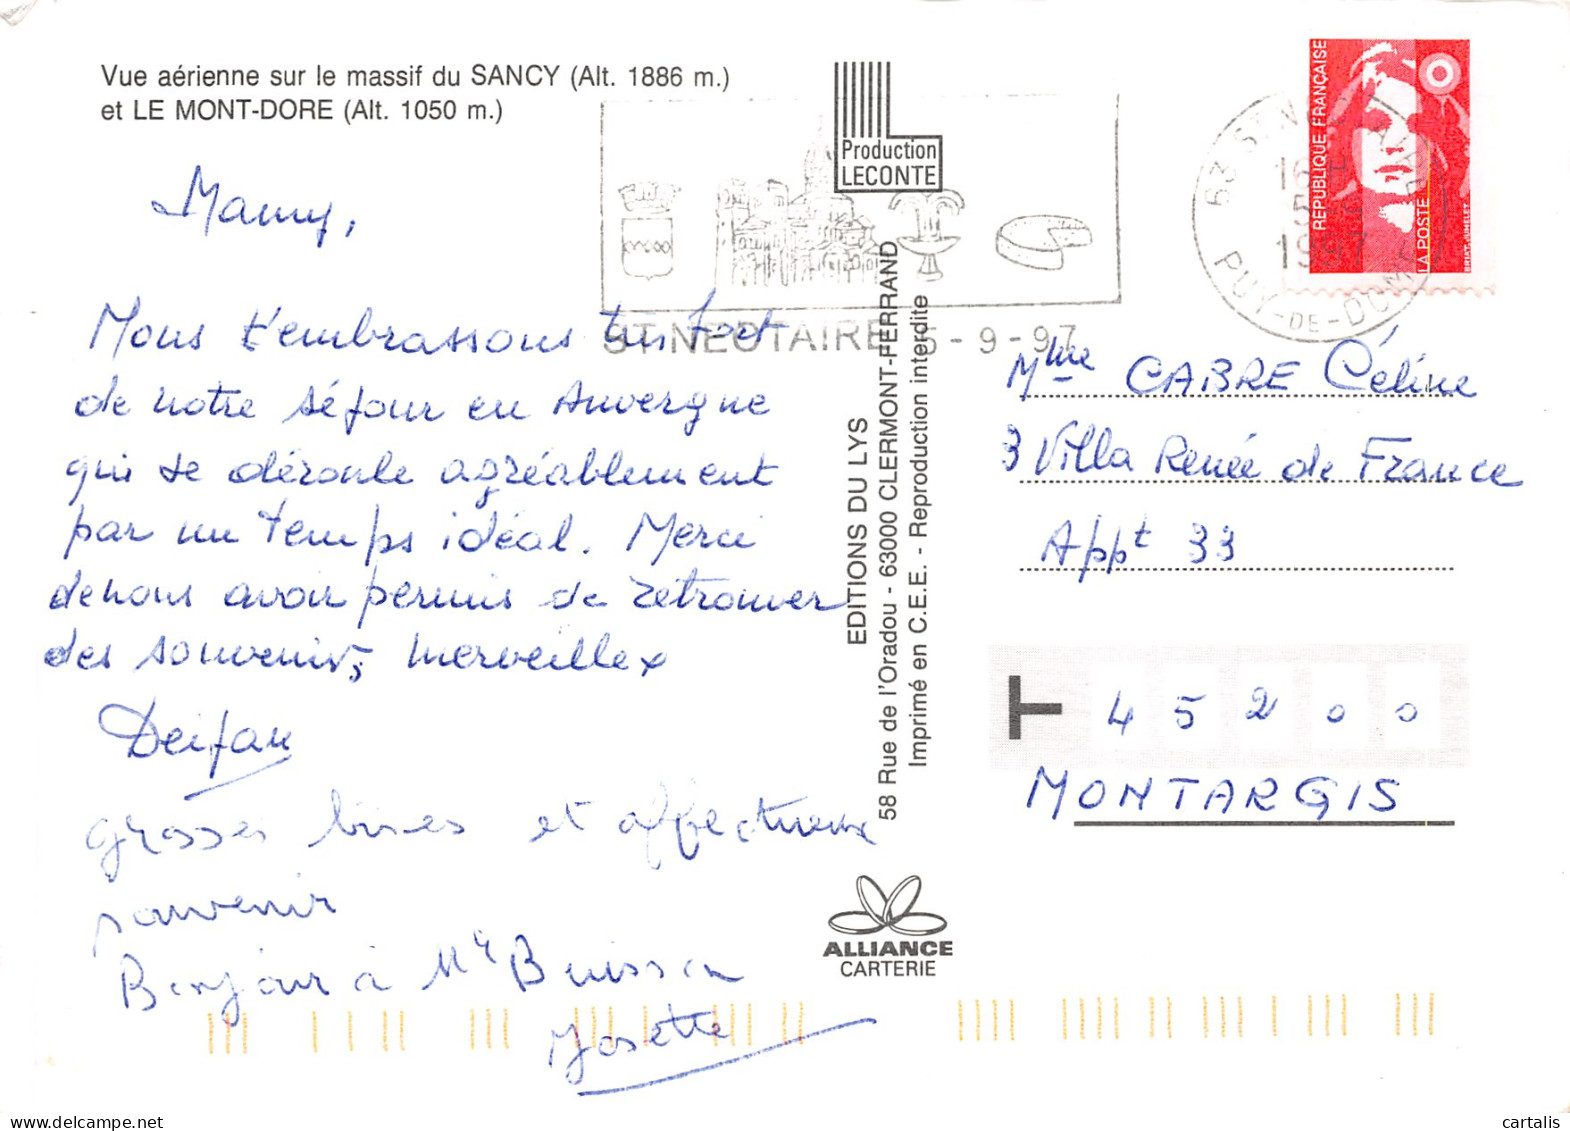 Vue aérienne sur le massif du SANCY (Alt. 1886 m.)
et LE MONT-DORE (Alt. 1050 m.)
Mamy,
Nous t'embrassons très fort
de notre séjour en Auvergne
qui se déroule agréablement
par un temps idéal. Merci
de nous avoir permis de retrouver
des souvenirs merveillex
grosses bises et affectueux
souvenir
Bonjour à Me Buisson
Josette
Production
LECONTE
ST NECTAIRE 5-9-97
EDITIONS DU LYS
58 Rue de l'Oradou - 63000 CLERMONT-FERRAND
Imprimé en C.E.E. - Reproduction interdite
ALLIANCE
CARTERIE
REPUBLIQUE FRANÇAISE
LA POSTE
BRIAT-JUMELET
63 ST NECTAIRE
16H
5-9
1997
PUY-DE-DOME
Mme CABRE Céline
3 Villa Renée de France
Appt 33
T 45200
MONTARGIS
cartalis
cartalis.com